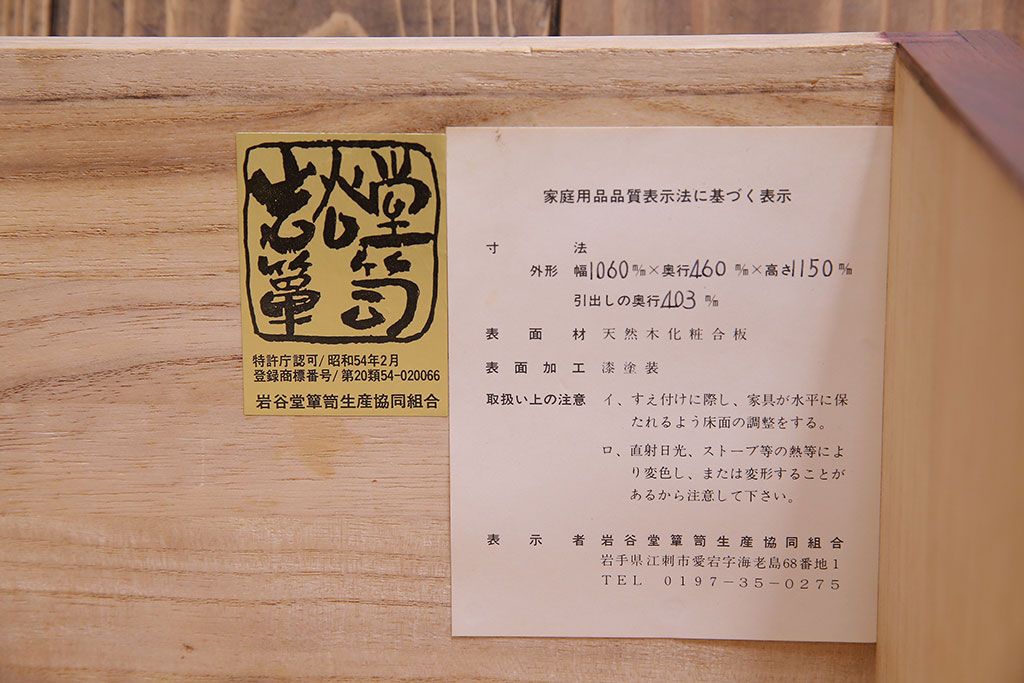 岩谷堂
箪笥
特許庁認可/昭和54年2月
登録商標番号/第20類54-020066
岩谷堂箪笥生産協同組合
家庭用品品質表示法に基づく表示
寸法
外形 幅1060m/m×奥行460m/m×高さ1150m/m
引出しの奥行403m/m
表面材 天然木化粧合板
表面加工 漆塗装
取扱い上の注意 イ、すえ付けに際し、家具が水平に保
たれるよう床面の調整をする。
ロ、直射日光、ストーブ等の熱等によ
り変色し、または変形することが
あるから注意して下さい。
表示者 岩谷堂箪笥生産協同組合
岩手県江刺市愛宕字海老島68番地1
TEL 0197-35-0275